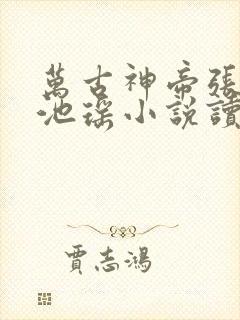 萬古神帝張
池瑤小說讀
賈志鴻